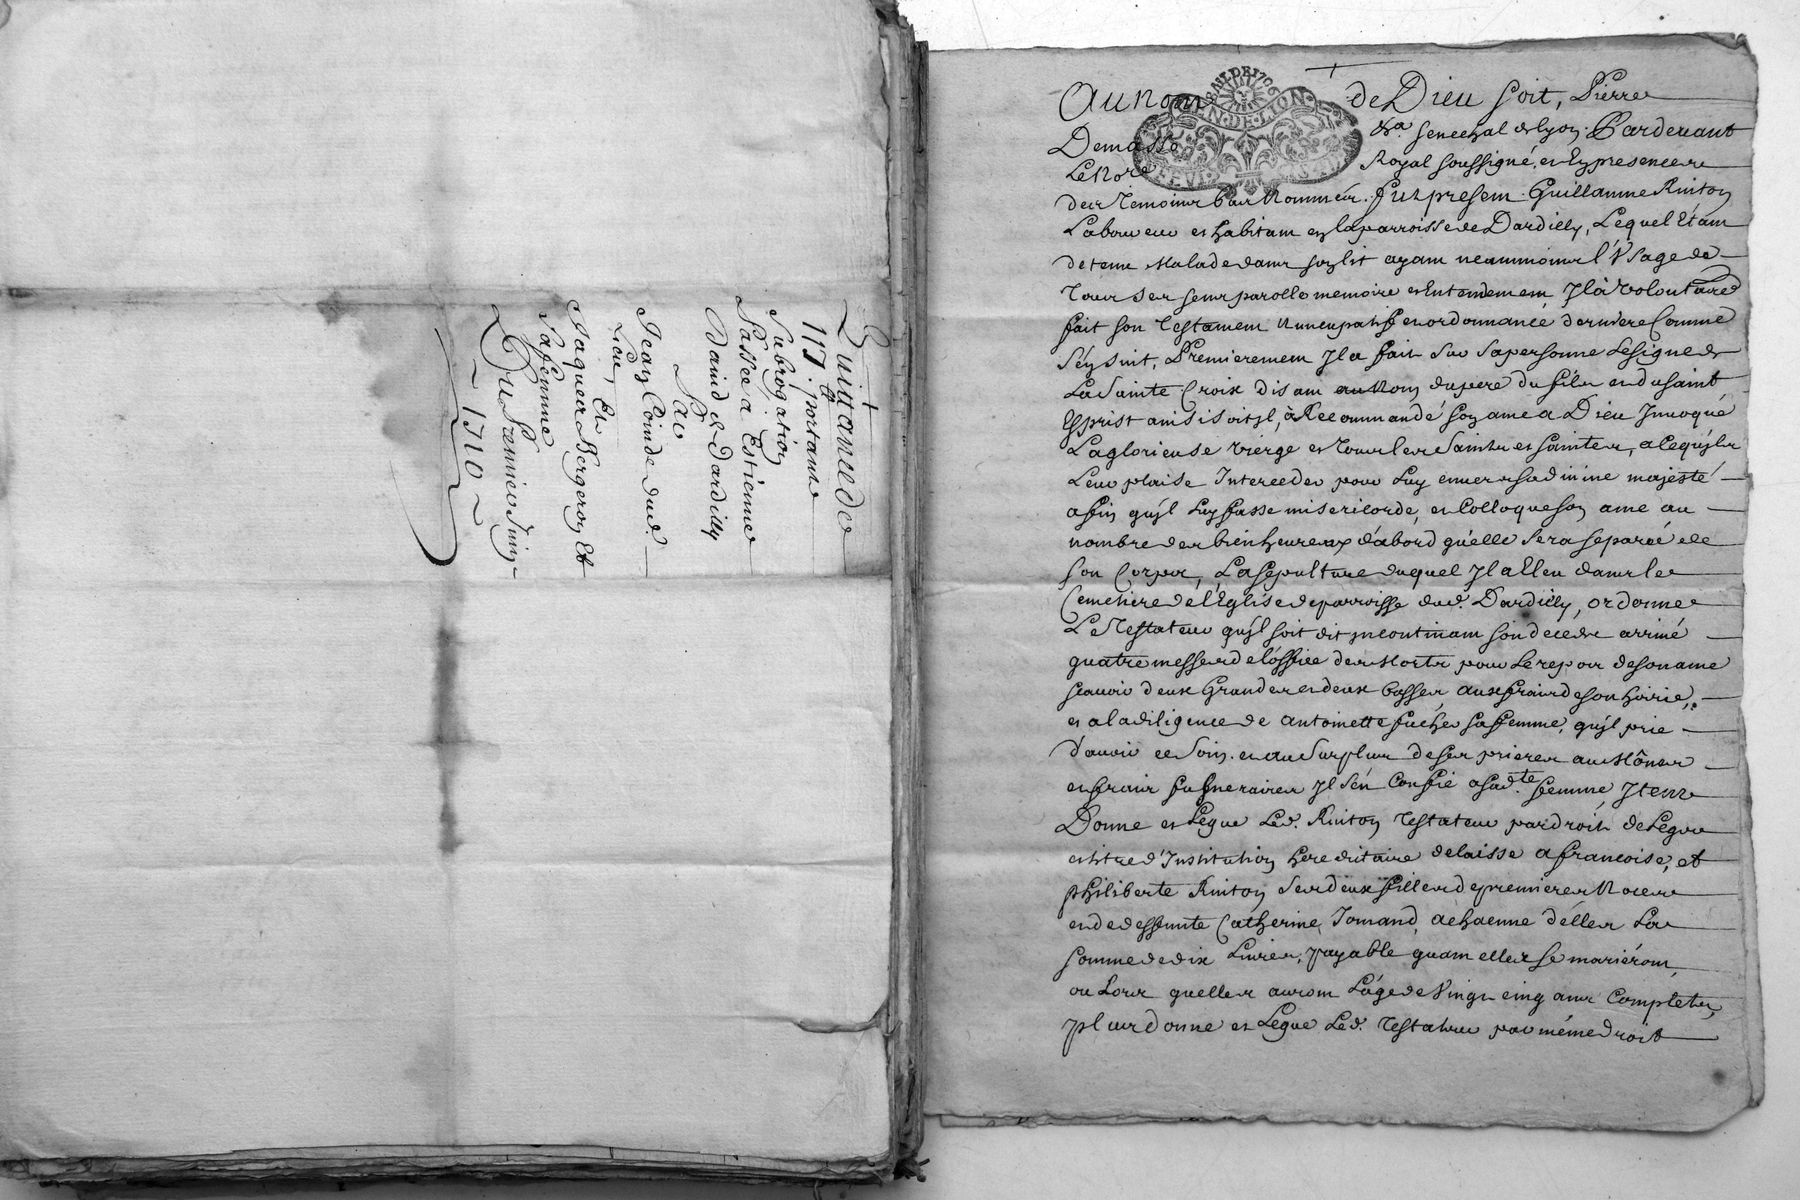 Quittance de
117.# portant
Subrogation
Passée a Estienne
David de Dardilly
Par
Jean Coinde dud.
Lieu, Et
Jaques Bergeron Et
Sa femme
Du Premier Juin
~ 1710 ~
GEN. DE LION
Au nom de Dieu soit, Pierre
Demasso &a senechal de lyon. Pardevant
Le No.re Royal soussigné, et En presence de
des Temoins bas Nommés. fut present Guillaume Rinton
Laboureur et habitant en la parroisse de Dardilly, Lequel Etant
detenu Malade dans son lit ayant neanmoins l'Usage de
Tous ses sens parolle memoire et Entendement Jl à volontaire
fait son Testament Nuncupatif et ordonnance derniere Comme
s'én suit, Premierement Jl a fait sur sa personne Le signe de
La Sainte Croix disant au Nom du pere du fils et du saint
Esprist ainsi soit jl, à Recommandé son ame a Dieu Jnvoqué
La glorieuse vierge et Tous les Saints et saintes, a ce qu'jls
Leur plaise Interceder pour Luy envers sa divine majesté
afin qu'jl Luy fasse misericorde, et Colloque son ame au
nombre des bienheureux d'abord qu'elle sera separée de
son Corps, La sepulture duquel Jl a Eleu dans le
Cemetiere de l'Eglise de parroisse dud. Dardilly, ordonne
Le Testateur qu'jl soit dit jncontinant son decede arrivé
quatre messes de l'office des Morts pour Le repos de son ame
scavoir deux Grandes et deux basses aux frais de son hoirie,
et a la diligence de antoinette sa femme, qu'jl prie
d'avoir ce soin. et au surplus de ses prieres aumônes
et frais funeraires Jl s'én Confie a sad.te femme Jtem
Donne et Legue Led. Rinton Testateur par droit de Legue
et titre d'Institution hereditaire delaisse a francoise, et
philiberte Rinton ses deux filles de premieres Noces
et de deffunte Catherine Jomand a chacune d'élles La
somme de dix Livres, payable quant elles se mariéront
ou Lors quelles auront L'áge de Vingt cinq ans Complets,
plus donne et Legue Led. Testateur par méme droit